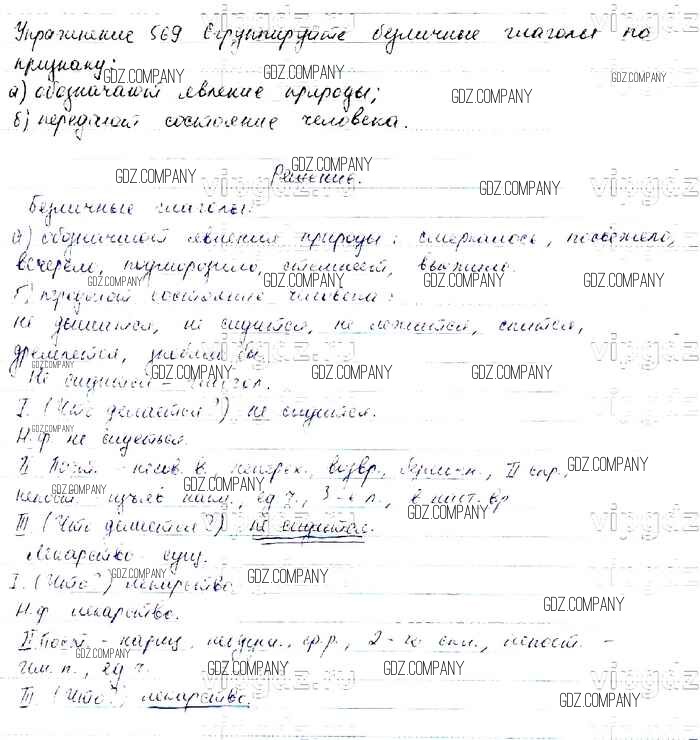 Упражнение 569 Сгруппируйте безличные глаголы по
признаку:
а) обозначают явление природы;
б) передают состояние человека.
Решение.
Безличные глаголы:
а) обозначают явления природы: смеркалось, посвежело,
вечереет, подморозило, стемнеет,
б) передают состояние человека:
не дышится, не сидится, не лежится, спится,
дремлется,
Не сидится - глагол.
I. (Что делается?) не сидится.
Н.ф. не сидеться.
II Пост. - несов. в., неперех., возвр., безличн., II спр.,
непост. изъяв. накл., ед. ч., 3-е л., в наст. вр.
III (Что делается?) не сидится.
Лекарство - сущ.
I. (Что?) лекарство.
Н.ф. лекарство.
II Пост. - нариц., неодуш., ср.р., 2-е скл., непост. -
им. п., ед. ч.
III (Что?) лекарство.
GDZ.COMPANY
vipgdz.ru